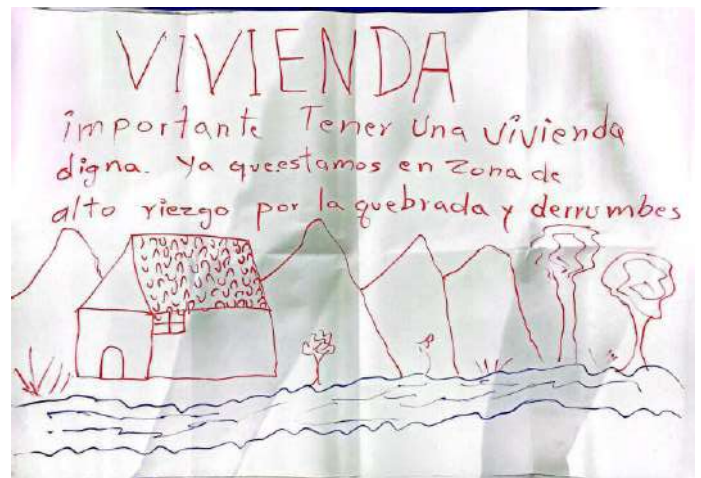 VIVIENDA
importante Tener Una vivienda
digna. ya queestamos en zona de
alto riezgo por la quebrada y derrumbes